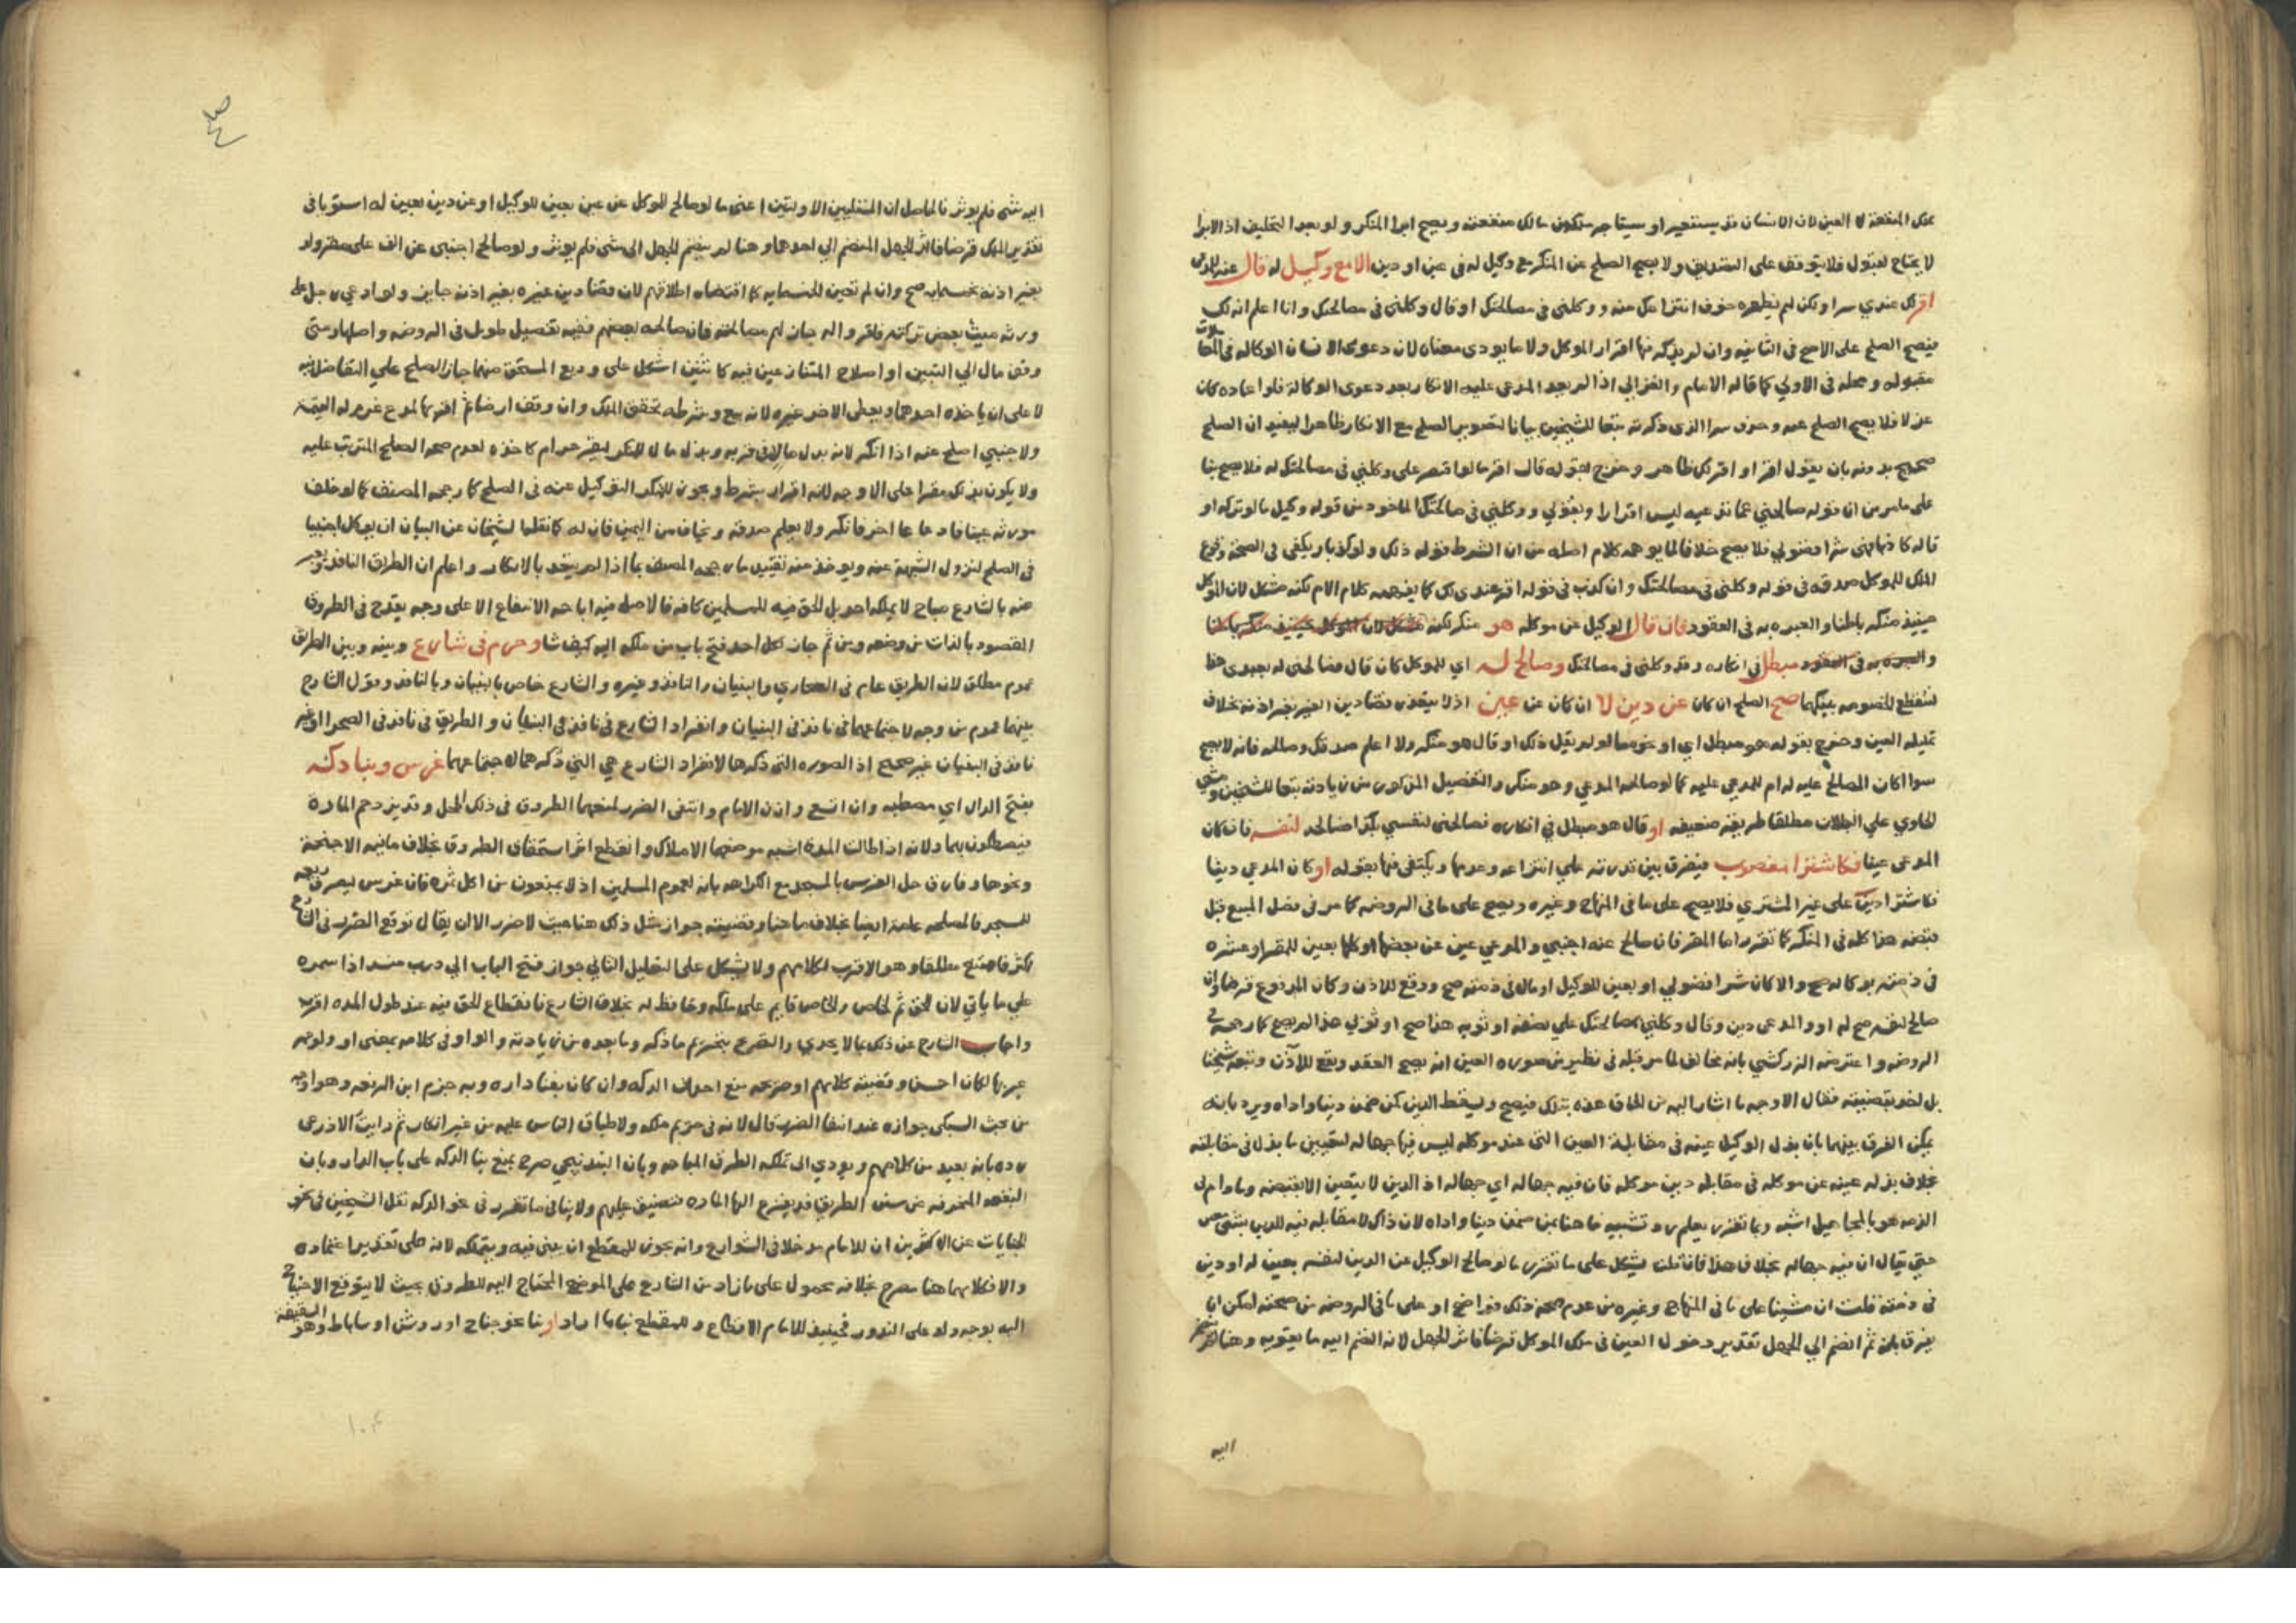 يملك المنفعة لا العين لان الانسان قد يستعير او يستاجر فتكون مالك منفعته ويصح ابرا المنكر ولو بعد التحليف اذ الابرا
لا يحتاج لقبول فلا يتوقف على التصديق ولا يصح الصلح عن المنكر مع وكيل له في عين او دين الا مع وكيل له قال عند
اقر لك عندي سرا ولكن لم يظهره خوف انتزاعك منه ووكلني في مصالحتك او قال وكلني في مصالحتك وانا اعلم انه لك
فيصح الصلح على الاصح في الثانية وان لم يذكر فيها اقرار الموكل ولا ما يودي معناه لان دعوى الانسان الوكاله في المعاملات
مقبوله ومحله في الاولي كما قاله الامام والغزالي اذا لم يعد المدعى عليه الانكار بعد دعوى الوكالة فلو اعاده كان
عزلا فلا يصح الصلح عنه وحذف سرا الذي ذكرته تبعا للشيخين بيانا لتصوير الصلح مع الانكار ظاهرا ليفيد ان الصلح
صحيح بدونه بان يقول اقر او اقر لك ظاهر وخرج بقوله قال اقر ما لو اقتصر على وكلني في مصالحتك له فلا يصح بنا
على ما مر من ان قوله صالحني عما تدعيه ليس اقرارا وبقولي ووكلني في مصالحتك الماخوذ من قوله وكيل ما لو تركه او
قاله كاذبا فهي شرا فضولي فلا يصح خلافا لما يوهمه كلام اصله من ان الشرط قوله ذلك ولو كذبا ويكفي في الصحة وقوع
الملك للموكل صدقه في قوله وكلني في مصالحتك وان كذب في قوله اقر عندي لك كما يفهمه كلام الام لكنه مشكل لان الموكل
حينيذ منكر باطنا والعبره به في العقود فان قال الوكيل عن موكله هو منكر لكنه مشكل لان الموكل حينيذ منكر باطنا
والعبره به في العقود مبطل في انكاره وقد وكلني في مصالحتك وصالح له اي للموكل كان قال فصالحني له بعبدي هذا
لتنقطع الخصومه بينكما صح الصلح ان كان عن دين لا ان كان عن عين اذ لا يتعذر قضا دين الغير بغير اذنه بخلاف
تمليك العين وخرج بقوله هو مبطل اي او نحوه ما لو لم يقل ذلك او قال هو منكر ولا اعلم صدقك وصالحه فانه لا يصح
سوا اكان المصالح عليه له ام للمدعي عليه كما لو صالحه المدعي وهو منكر والتفصيل المذكور من زيادته تبعا للشيخين ومشى
الحاوي علي البطلان مطلقا طريقة ضعيفه او قال هو مبطل في انكاره فصالحني لنفسي بكذا فصالحه لنفسه فان كان
المدعى عينا فكاشترا مغصوب فيفرق بين قدرته علي انتزاعه وعدمها ويكتفى فيها بقوله او كان المدعي دينا
فكاشترا دين على غير المشتري فلا يصح على ما في المنهاج وغيره ويصح على ما في الروضه كما مر في فصل المبيع قبل
قبضه هذا كله في المنكر كما تقرر اما المقر فان صالح عنه اجنبي والمدعي عين عن بعضها او كلها بعين للمقر او عشره
في ذمته بوكاله صح والا كان شرا فضولي او بعين للوكيل او مال في ذمته صح ووقع للاذن وكان المدفوع قرضا وان
صالح لنفسه صح له او والمدعى دين وقال وكلني بمصالحتك علي نصفه او ثوبه هذا صح او ثوبي هذا لم يصح كما رجحه في
الروضه واعترضه الزركشي بانه مخالف لما مر قبله في نظيره من صوره العين انه يصح العقد ويقع للآذن وتبعه شيخنا
بل اخذ بقضيته فقال الاوجه ما اشار اليه من الحاق هذه بتلك فيصح ويسقط الدين كمن ضمن دينا واداه ويرد بانه
يمكن الفرق بينهما بان بذل الوكيل عينه في مقابلة العين التي عند موكله ليس فيها جهاله لتعيين ما بذل في مقابلته
بخلاف بذله عينه عن موكله في مقابله دين موكله فان فيه جهاله اي جهاله اذ الدين لا يتعين الا بقبضه وما دام في
الذمه هو بالمجاهيل اشبه وبما تقرر يعلم رد تشبيه ما هنا بمن ضمن دينا واداه لان ذاك لا مقابله فيه للدين بشي
حتى يقال ان فيه جهاله بخلاف هذا فان قلت يشكل على ما تقرر ما لو صالح الوكيل عن الدين لنفسه بعين له او دين
في ذمته قلت ان مشينا على ما في المنهاج وغيره من عدم صحة ذلك فواضح او على ما في الروضه من صحته امكن ان
يفرق بان ثم انضم الي الجهل تقدير دخول العين في ملك الموكل قرضا فاثر الجهل لانه انضم اليه ما يقويه وهنا لم ينضم
اليه
اليه شي فلم يوثر فالحاصل ان المسئلتين الاولتين اعني ما لو صالح للموكل عن عين بعين للوكيل او عن دين بعين له استويا في
تقدير الملك قرضا فاثر الجهل المنضم الي احدهما وهنا لم ينضم الجهل الى شي فلم يوثر ولو صالح اجنبي عن الف على مقر ولو
بغير اذنه بخمسمايه صح وان لم تعين الخمسمايه كما اقتضاه اطلاقهم لان قضا دين غيره بغير اذنه جايز ولو ادعي رجل على
ورثه ميت بعض تركته فاقروا له جاز لهم مصالحته فان صالحه بعضهم ففيه تفصيل طويل في الروضه واصلها ومتى
وقف مال الي التبين او اصلاح المتنازعين فيه كاثنين اشكل على وديع المستحق منهما جاز الصلح علي التفاضل فيه
لا على ان ياخذه احدهما ويعطى الاخر غيره لانه بيع وشرطه تحقق الملك وان وقف ارضا ثم اقر بها لمدع غرم له القيمة
ولاجنبي اصلح عنه اذا انكر لانه بدل مال في قربه وبذل مال لمنكر ليقر حرام كاخذه لعدم صحه الصلح المترتب عليه
ولا يكون بذلك مقرا على الاوجه لانه اقرار بشرط ويجوز للمنكر التوكيل عنه في الصلح كما رجحه المصنف كما لو خلف
مورثه عينا فادعاها اخر فانكر ولا يعلم صدقه ويخاف من اليمين فان له كما نقلها الشيخان عن البيان ان يوكل اجنبيا
في الصلح لتزول الشبهة عنه ويوخذ منه تقييد ما رجحه المصنف بما اذا لم يتعد بالانكار واعلم ان الطريق النافذ ويعبر
عنه بالشارع مباح لا يملكه احد بل الحق فيه للمسلمين كافه فالاصل فيه اباحه الانتفاع الا على وجه يقدح في الطروق
المقصود بالذات من وضعه ومن ثم جاز لكل احد فتح باب من ملكه اليه كيف شا وحرم في شارع وبينه وبين الطريق
عموم مطلق لان الطريق عام في الصحاري والبنيان والنافذ وغيره والشارع خاص بالبنيان وبالنافذ وقول الشارح
بينهما عموم من وجه لاجتماعهما في نافذ في البنيان وانفراد الشارع في نافذ في البنيان والطريق في نافذ في الصحرا او غير
نافذ في البنيان غير صحيح اذ الصوره التي ذكرها لانفراد الشارع هي التي ذكرها لاجتماعهما غرس وبنا دكه
بفتح الدال اي مصطبه وان اتسع واذن الامام وانتفى الضرر لمنعهما الطروق في ذلك المحل وقد يزدحم المارة
فيصطكون بهما ولانه اذا طالت المدة اشبه موضعهما الاملاك وانقطع اثر استحقاق الطروق بخلاف ما فيه الاجنحة
ونحوها وفارق حل الغرس بالمسجد مع الكراهه بانه لعموم المسلمين اذ لا يمنعون من اكل ثمره فان غرس ليصرف ريعه
للمسجد فالمصلحه عامة ايضا بخلاف ما هنا وقضيته جواز مثل ذلك هنا حيث لا ضرر الا ان يقال توقع الضرر في الشارع
اكثر فامتنع مطلقا وهو الاقرب لكلامهم ولا يشكل على التعليل الثاني جواز فتح الباب الي درب منسد اذا سمره
علي ما ياتي لان الحق ثم لخاص والخاص قايم على ملكه وحافظ له بخلاف الشارع فانقطاع الحق فيه عند طول المده اقرب
واجاب الشارح عن ذلك بما لا يجدي والتصريح بتحريم ما ذكر وما بعده من زيادته والواو في كلامه بمعنى او ولو
عبر بها لكان احسن وقضية كلامهم او صريحه منع احداث الدكه وان كان بفنا داره وبه جزم ابن الرفعه وهو اوجه
من بحث السبكي جوازه عند انتفا الضرر قال لانه في حريم ملكه ولاطباق الناس عليه من غير انكار ثم رايت الاذرعي
رده بانه بعيد من كلامهم ويودي الى تملك الطرق المباحه وبان البندنيجي صرح بمنع بنا الدكه على باب الدار وبان
البقعه المنحرفه عن سنن الطريق قد يفزع اليها الماره فتضيق عليهم ولا ينافي ما تقرر في نحو الدكه نقل الشيخين في نحو
الجنايات عن الاكثرين ان للامام مدخلا في الشوارع وانه يجوز للمقطع ان يبني فيه ويتملكه لانه على تقدير اعتماده
والا فكلامهما هنا مصرح بخلافه محمول على ما زاد من الشارع على الموضع المحتاج اليه للطروق بحيث لا يتوقع الاحتياج
اليه بوجه ولو على الندور فحينيذ للامام الاقطاع وللمقطع بنا ما اراد او بنا نحو جناح او روشن او ساباط وهو السقيفة
١٠٤